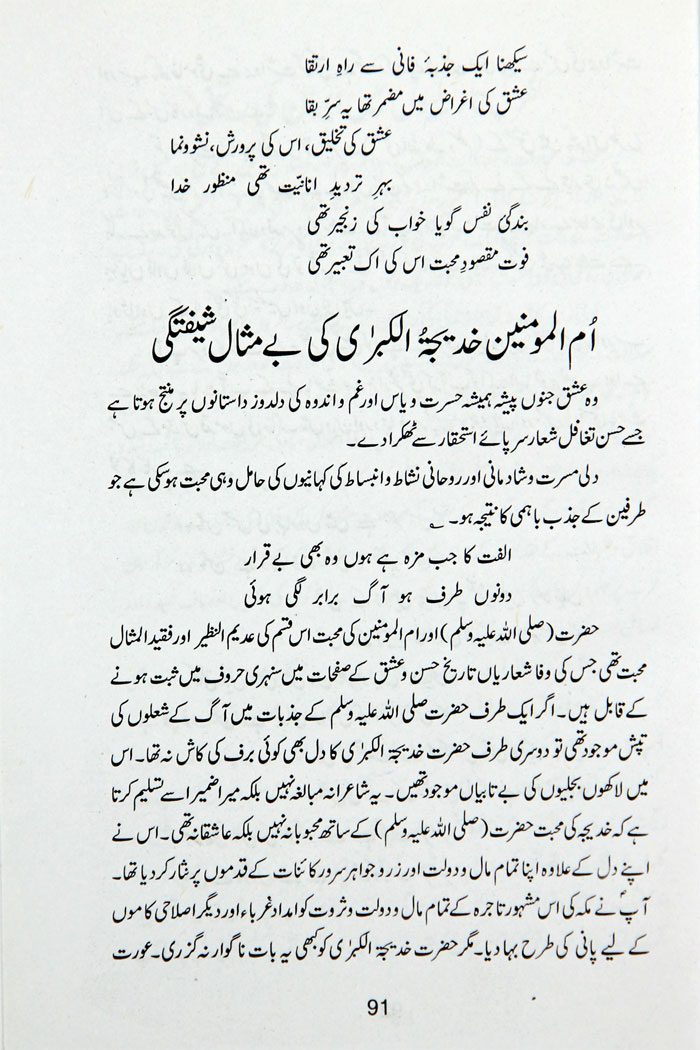 سیکھنا ایک جذبۂ فانی سے راہِ ارتقا
عشق کی اغراض میں مضمر تھا یہ سرِّ بقا
عشق کی تخلیق، اس کی پرورش، نشوونما
بہرِ تردیدِ انانیّت تھی منظور خدا
بندگیٔ نفس گویا خواب کی زنجیر تھی
فوت مقصودِ محبت اس کی اک تعبیر تھی
اُم المومنین خدیجۃُ الکبرٰی کی بے مثال شیفتگی
وہ عشق جنوں پیشہ ہمیشہ حسرت و یاس اور غم و اندوہ کی دلدوز داستانوں پر منتج ہوتا ہے
جسے حسن تغافل شعار سرپائے استحقار سے ٹھکرا دے۔
دلی مسرت و شادمانی اور روحانی نشاط و انبساط کی کہانیوں کی حامل وہی محبت ہوسکی ہے جو
طرفین کے جذب باہمی کا نتیجہ ہو۔ ؎
الفت کا جب مزہ ہے ہوں وہ بھی بے قرار
دونوں طرف ہو آگ برابر لگی ہوئی
حضرت (صلی اللہ علیہ وسلم) اور ام المومنین کی محبت اس قسم کی عدیم النظیر اور فقید المثال
محبت تھی جس کی وفا شعاریاں تاریخ حسن و عشق کے صفحات میں سنہری حروف میں ثبت ہونے
کے قابل ہیں۔ اگر ایک طرف حضرت صلی اللہ علیہ وسلم کے جذبات میں آگ کے شعلوں کی
تپش موجود تھی تو دوسری طرف حضرت خدیجۃ الکبرٰی کا دل بھی کوئی برف کی کاش نہ تھا۔ اس
میں لاکھوں بجلیوں کی بے تابیاں موجود تھیں۔ یہ شاعرانہ مبالغہ نہیں بلکہ میرا ضمیر اسے تسلیم کرتا
ہے کہ خدیجہ کی محبت حضرت (صلی اللہ علیہ وسلم) کے ساتھ محبوبانہ نہیں بلکہ عاشقانہ تھی۔ اس نے
اپنے دل کے علاوہ اپنا تمام مال و دولت اور زر و جواہر سرور کائنات کے قدموں پر نثار کردیا تھا۔
آپؐ نے مکہ کی اس مشہور تاجرہ کے تمام مال و دولت و ثروت کو امداد غرباء اور دیگر اصلاحی کاموں
کے لیے پانی کی طرح بہا دیا۔ مگر حضرت خدیجۃ الکبرٰی کو کبھی یہ بات ناگوار نہ گزری۔ عورت
91